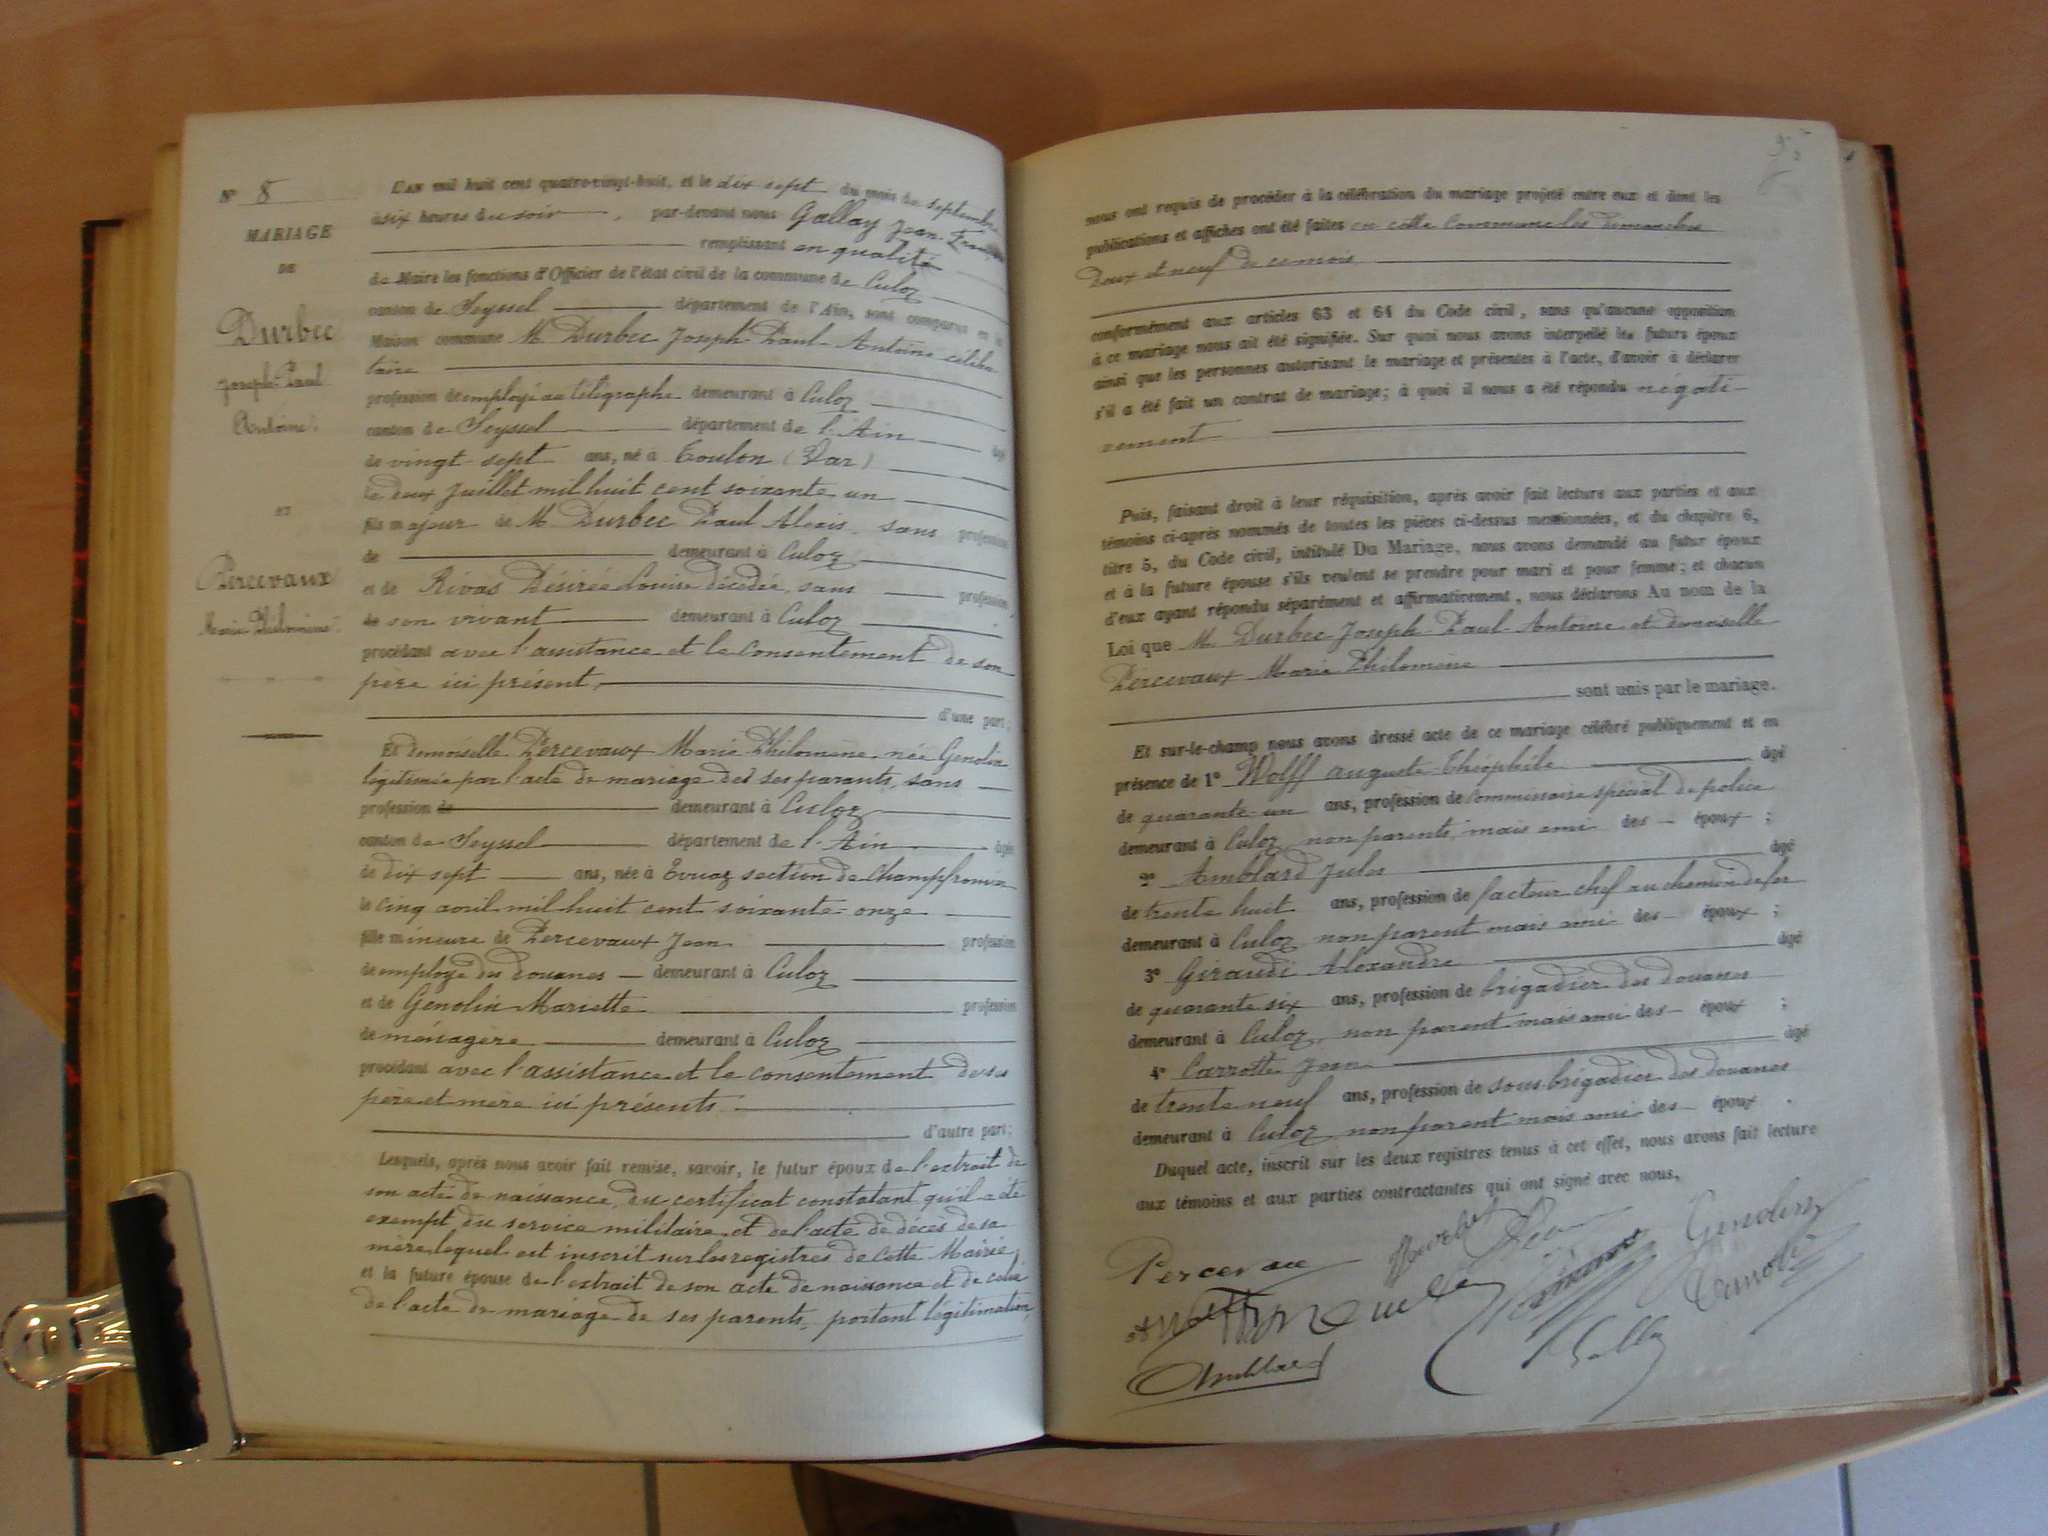 N° 8
MARIAGE
DE
Durbec
Joseph-Paul
Antoine.
ET
Percevaux
Marie Philomène.
L'AN mil huit cent quatre-vingt-huit, et le dix sept du mois de septembre
à six heures du soir, par-devant nous Gallay Jean
remplissant en qualité
de Maire les fonctions d'Officier de l'état civil de la commune de Culoz
canton de Seyssel département de l'Ain, sont comparus en la
Maison commune M. Durbec Joseph-Paul-Antoine céliba-
taire
profession de employé au télégraphe demeurant à Culoz
canton de Seyssel département de l'Ain âgé
de vingt-sept ans, né à Toulon (Var)
le deux Juillet mil huit cent soixante un
fils majeur de M. Durbec Paul Alexis sans profession
de demeurant à Culoz
et de Rivas Désirée Louise décédée, sans profession
de son vivant demeurant à Culoz
procédant avec l'assistance et le consentement de son
père ici présent,
d'une part;
Et demoiselle Percevaux Marie Philomène née Genolin
légitimée par l'acte de mariage de ses parents, sans
profession de demeurant à Culoz
canton de Seyssel département de l'Ain âgée
de dix sept ans, née à Evuaz section de Champfromier
le cinq avril mil huit cent soixante-onze
fille mineure de Percevaux Jean profession
de employé des douanes demeurant à Culoz
et de Genolin Mariette profession
de ménagère demeurant à Culoz
procédant avec l'assistance et le consentement de ses
père et mère ici présents.
d'autre part;
Lesquels, après nous avoir fait remise, savoir, le futur époux de l'extrait de
son acte de naissance, du certificat constatant qu'il a été
exempt du service militaire et de l'acte de décès de sa
mère lequel est inscrit sur les registres de cette Mairie,
et la future épouse de l'extrait de son acte de naissance et de celui
de l'acte de mariage de ses parents, portant légitimation,
nous ont requis de procéder à la célébration du mariage projeté entre eux et dont les
publications et affiches ont été faites en cette commune les dimanches
deux et neuf de ce mois
conformément aux articles 63 et 64 du Code civil, sans qu'aucune opposition
à ce mariage nous ait été signifiée. Sur quoi nous avons interpellé les futurs époux
ainsi que les personnes autorisant le mariage et présentes à l'acte, d'avoir à déclarer
s'il a été fait un contrat de mariage; à quoi il nous a été répondu négati-
vement
Puis, faisant droit à leur réquisition, après avoir fait lecture aux parties et aux
témoins ci-après nommés de toutes les pièces ci-dessus mentionnées, et du chapitre 6,
titre 5, du Code civil, intitulé Du Mariage, nous avons demandé au futur époux
et à la future épouse s'ils veulent se prendre pour mari et pour femme; et chacun
d'eux ayant répondu séparément et affirmativement, nous déclarons Au nom de la
Loi que M. Durbec Joseph-Paul-Antoine et demoiselle
Percevaux Marie Philomène
sont unis par le mariage.
Et sur-le-champ nous avons dressé acte de ce mariage célébré publiquement et en
présence de 1° Wolff Auguste-Théophile âgé
de quarante-un ans, profession de commissaire spécial de police
demeurant à Culoz non parents, mais ami des époux ;
2° Amblard Jules âgé
de trente huit ans, profession de facteur chef au chemin de fer
demeurant à Culoz non parent mais ami des époux ;
3° Giraudi Alexandre âgé
de quarante six ans, profession de brigadier des douanes
demeurant à Culoz, non parent mais ami des époux ;
4° Carrotte Jean âgé
de trente neuf ans, profession de sous-brigadier des douanes
demeurant à Culoz non parent mais ami des époux .
Duquel acte, inscrit sur les deux registres tenus à cet effet, nous avons fait lecture
aux témoins et aux parties contractantes qui ont signé avec nous,
Genolin
Amblard